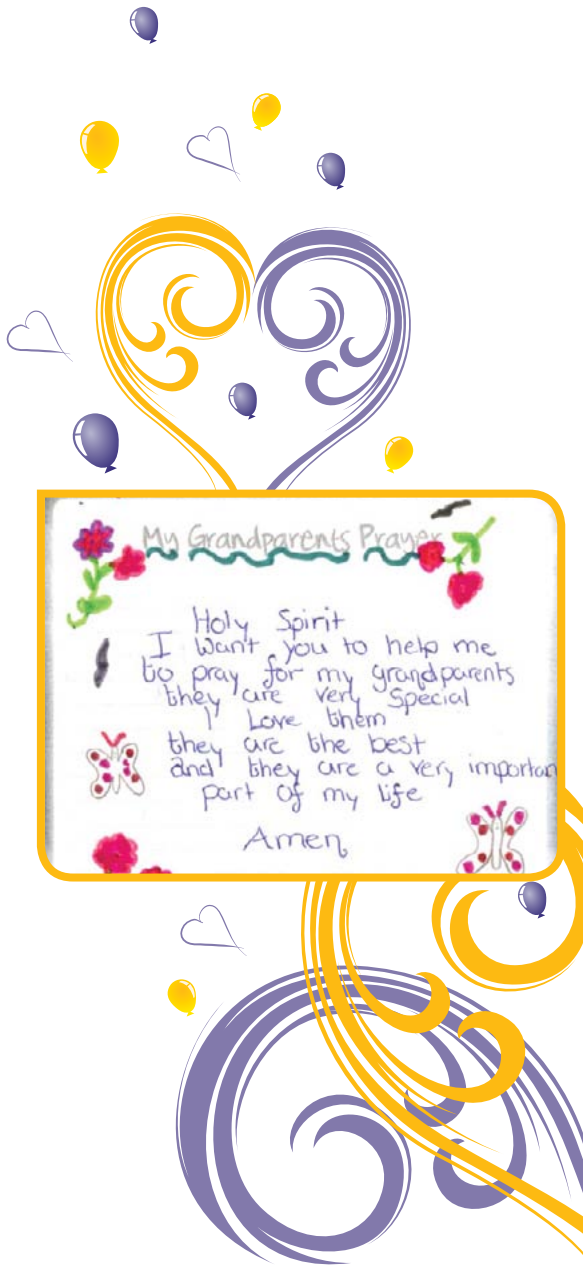 My Grandparents Prayer
Holy Spirit
I want you to help me
to pray for my grandparents
they are very special
I Love them
they are the best
and they are a very importan
part of my life
Amen